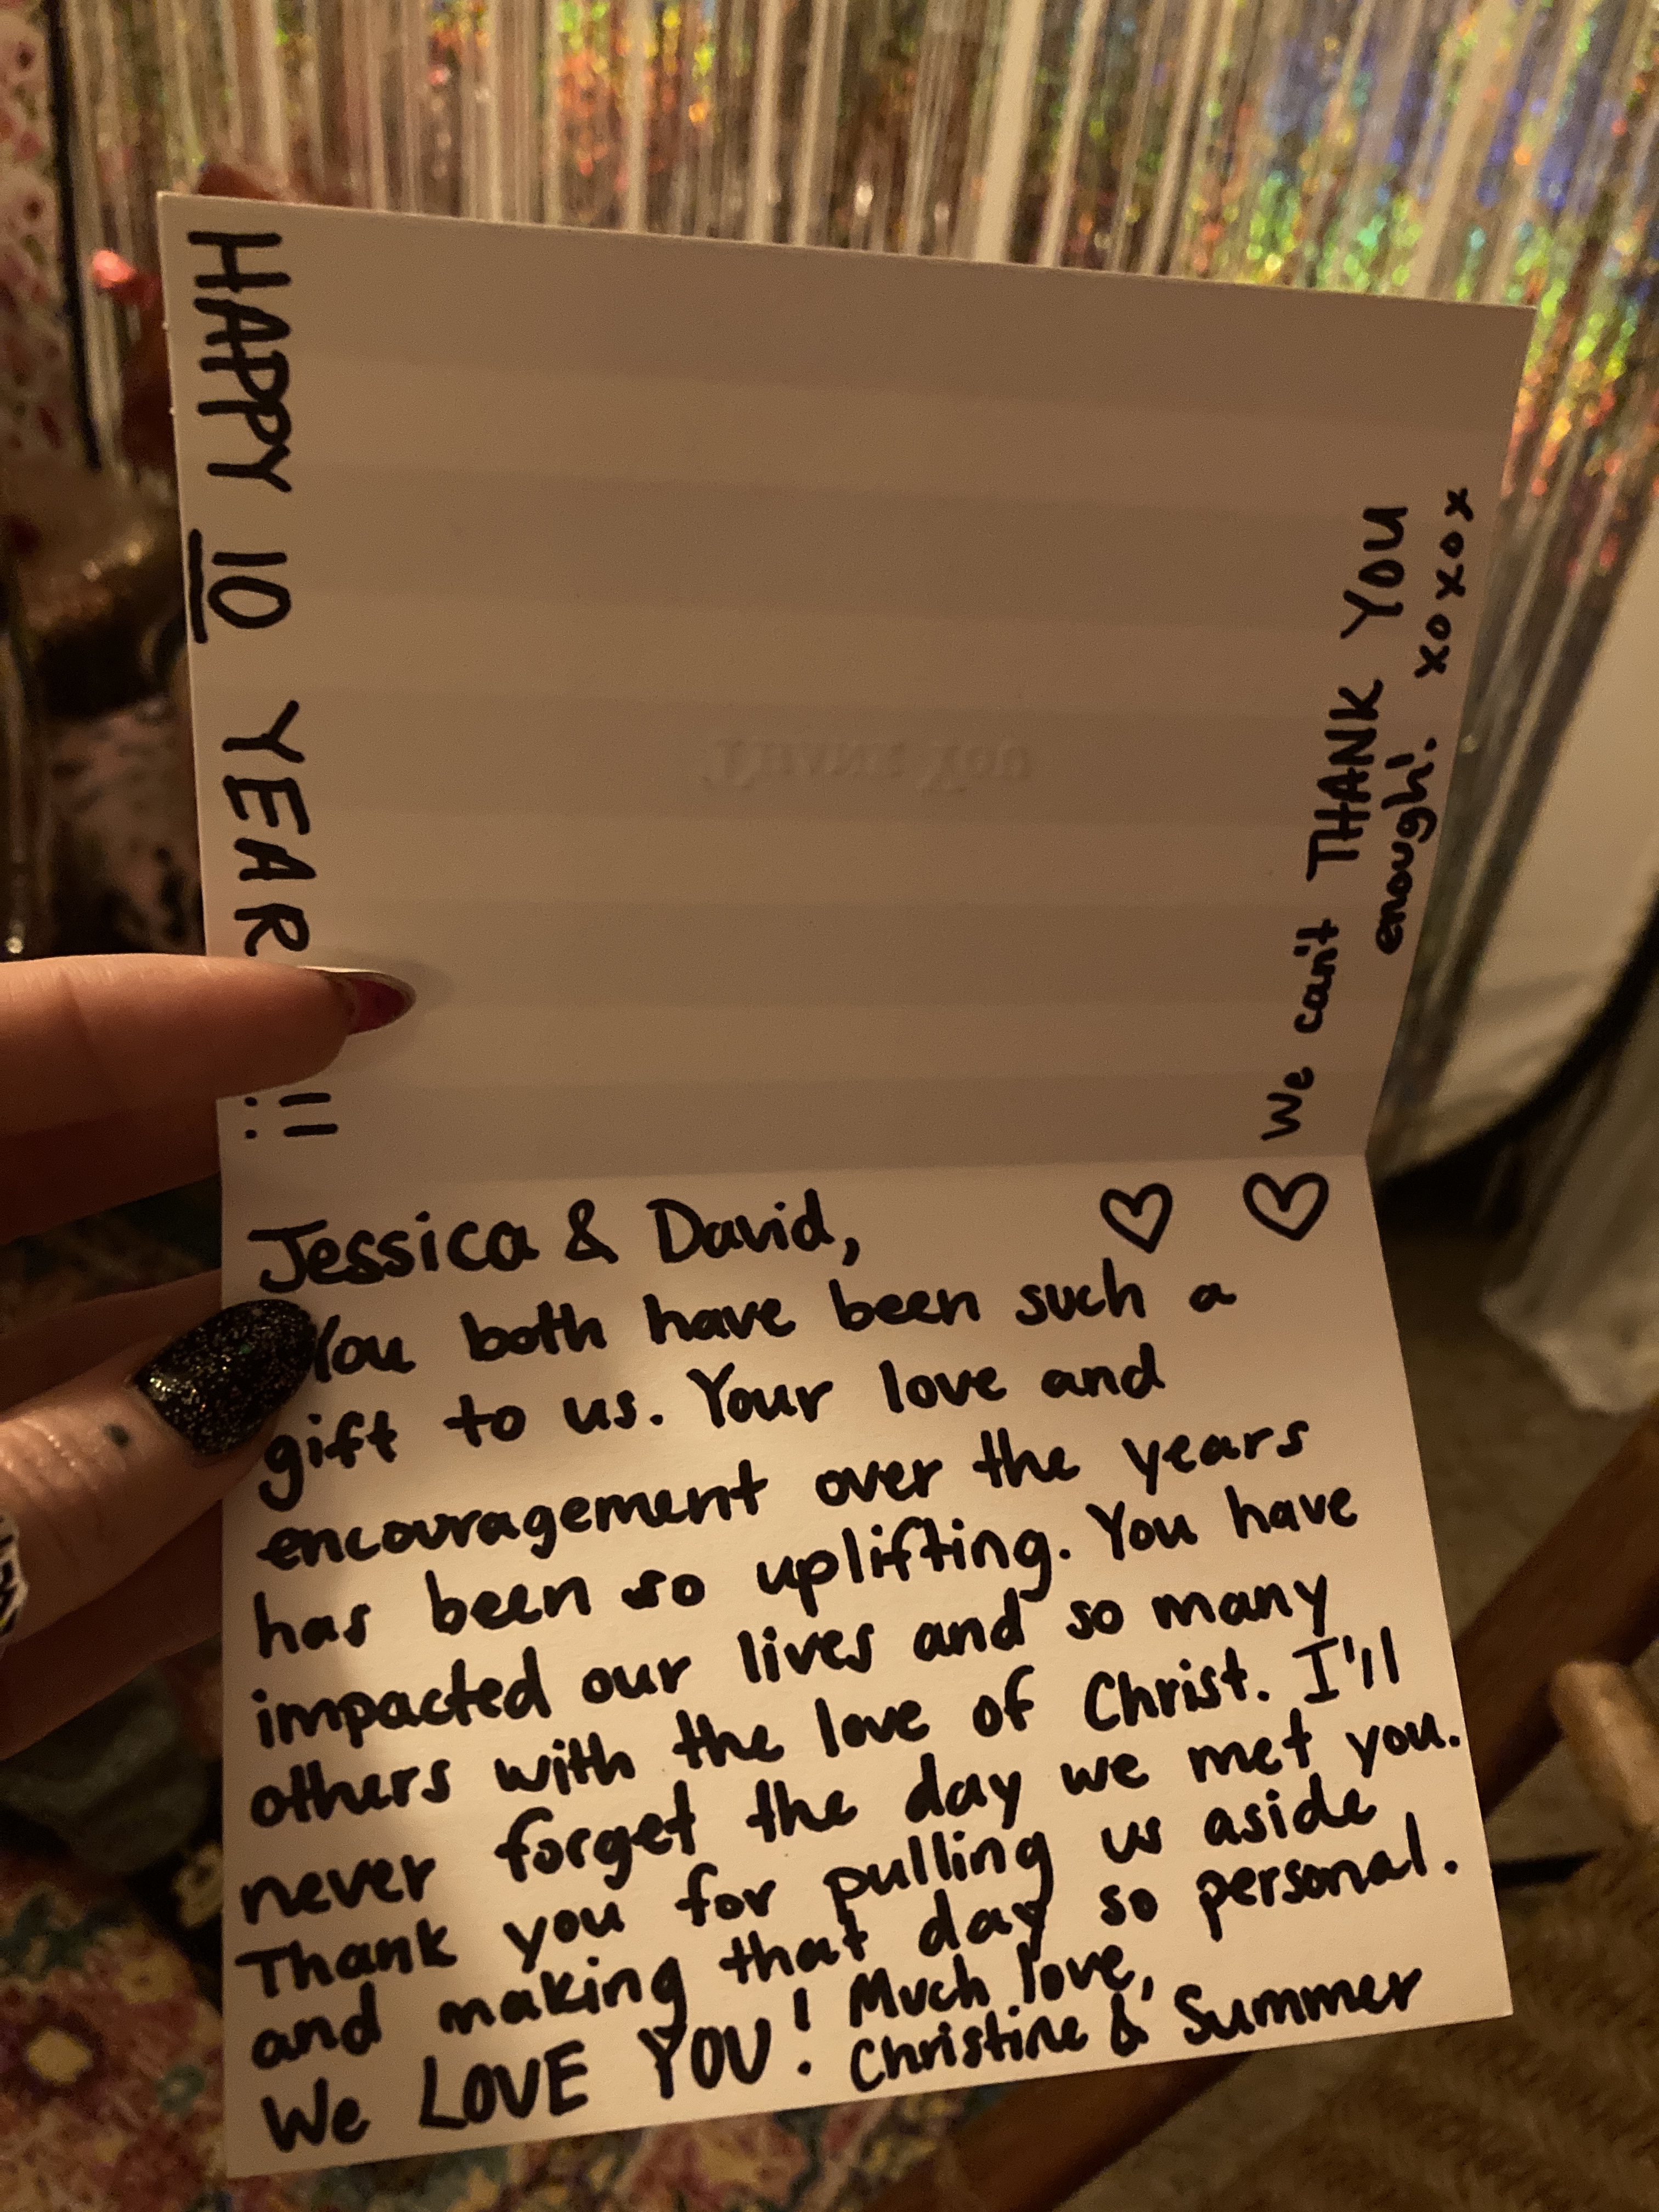 HAPPY 10 YEAR !!
THANK YOU
Jessica & David,
You both have been such a
gift to us. Your love and
encouragement over the years
has been so uplifting. You have
impacted our lives and so many
others with the love of Christ. I'll
never forget the day we met you.
Thank you for pulling us aside
and making that day so personal.
We LOVE YOU! Much love,
Christine & Summer
We can't THANK YOU
enough! xoxox